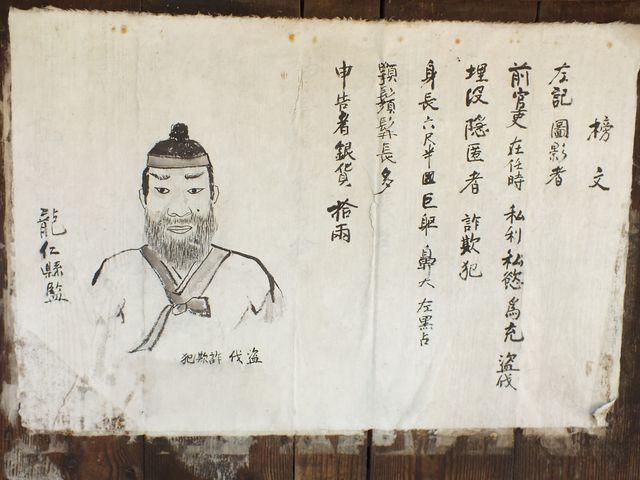 榜文
左記 圖影者
前官吏 在任時 私利私慾 爲充 盜伐
埋没 隱匿者 詐欺犯
身長 六尺半 國巨躯 鼻大 左黑占
顎鬚鬚髥長多
申告者 銀貨 拾兩
盜伐 詐欺犯
龍仁縣監